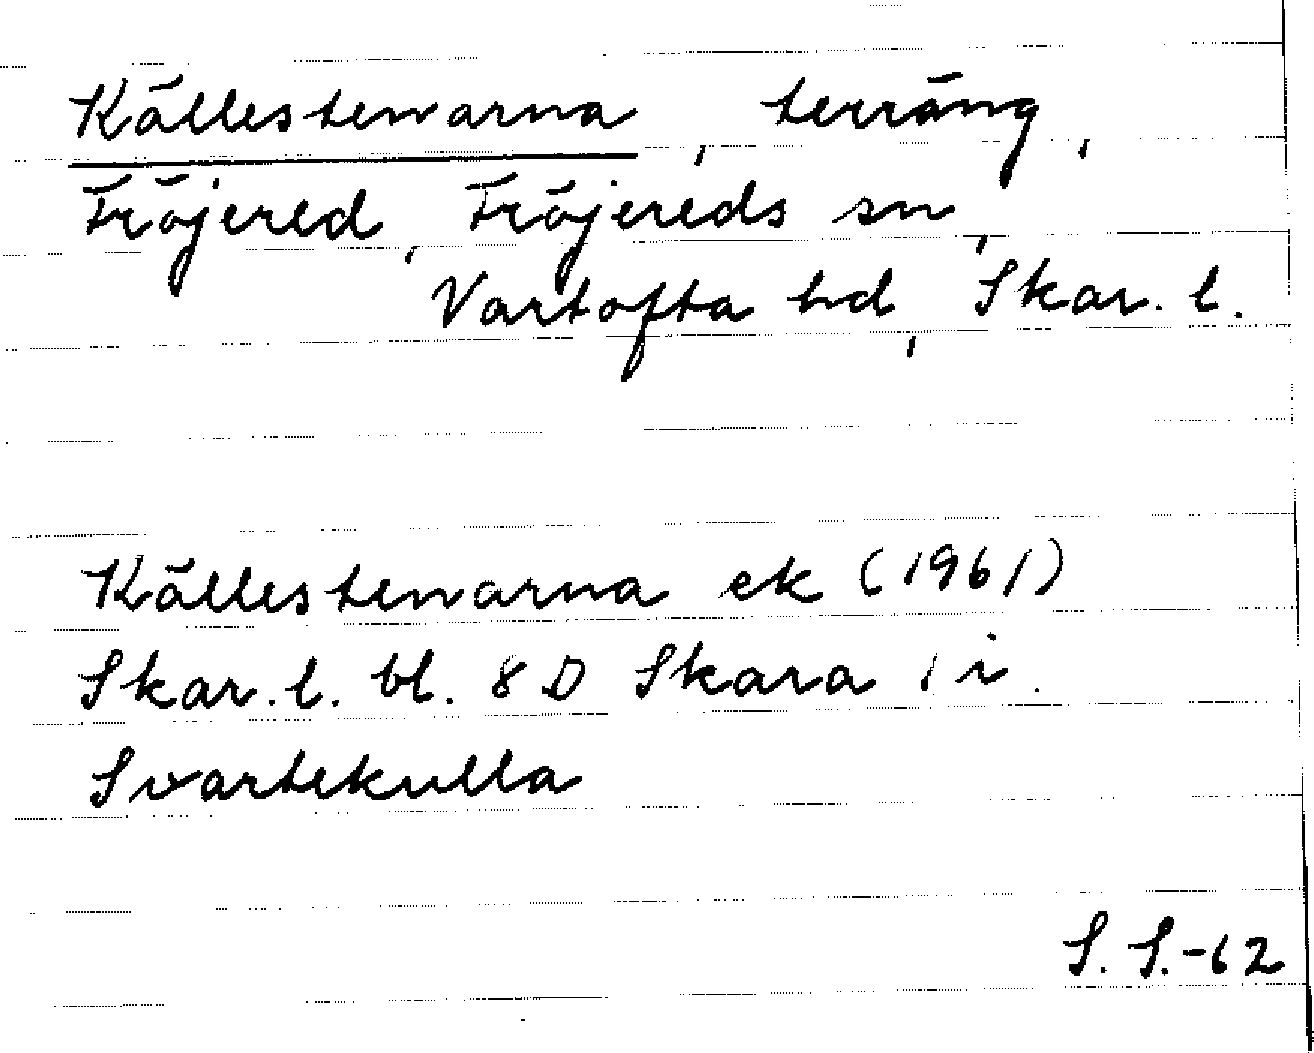 Källestenarna, terräng,
Fröjered, Fröjereds sn,
Vartofta hd, Skar. l.
Källestenarna ek (1961)
Skar. l. bl. 8 D Skara 1 i.
Svartekulla
S. S.-62